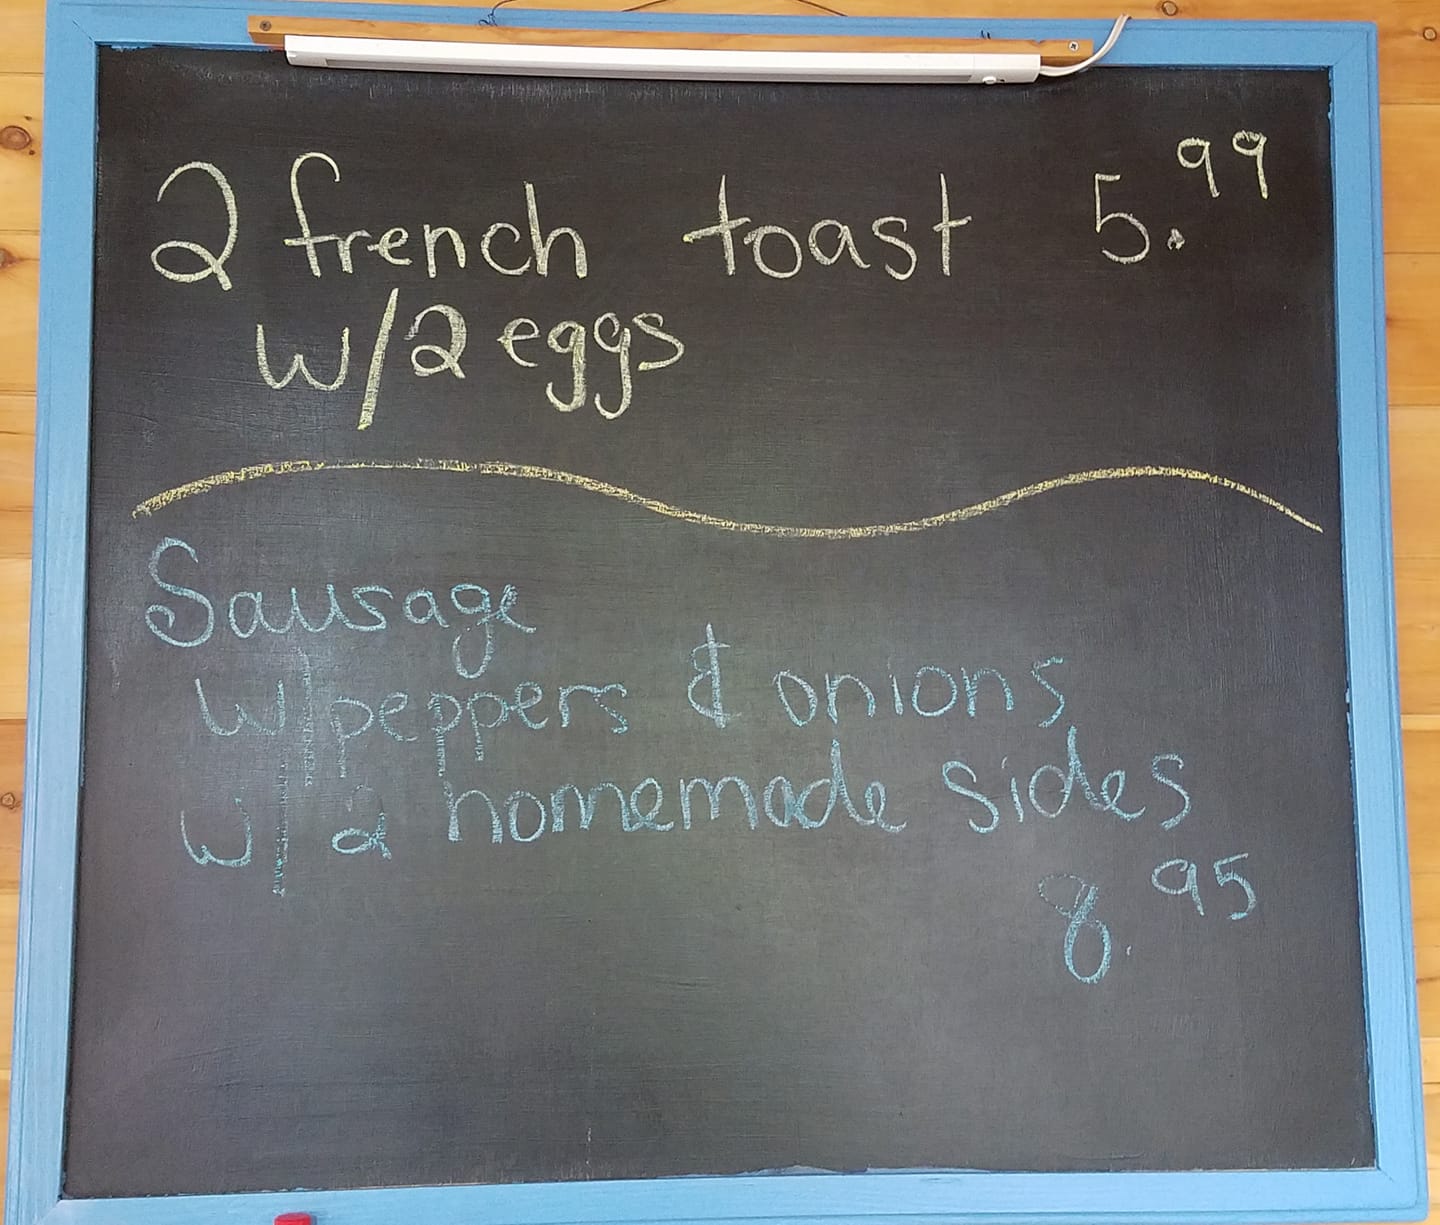 2 french toast 5.99
w/2 eggs
Sausage
w/peppers & onions
w/ 2 homemade sides
8.95